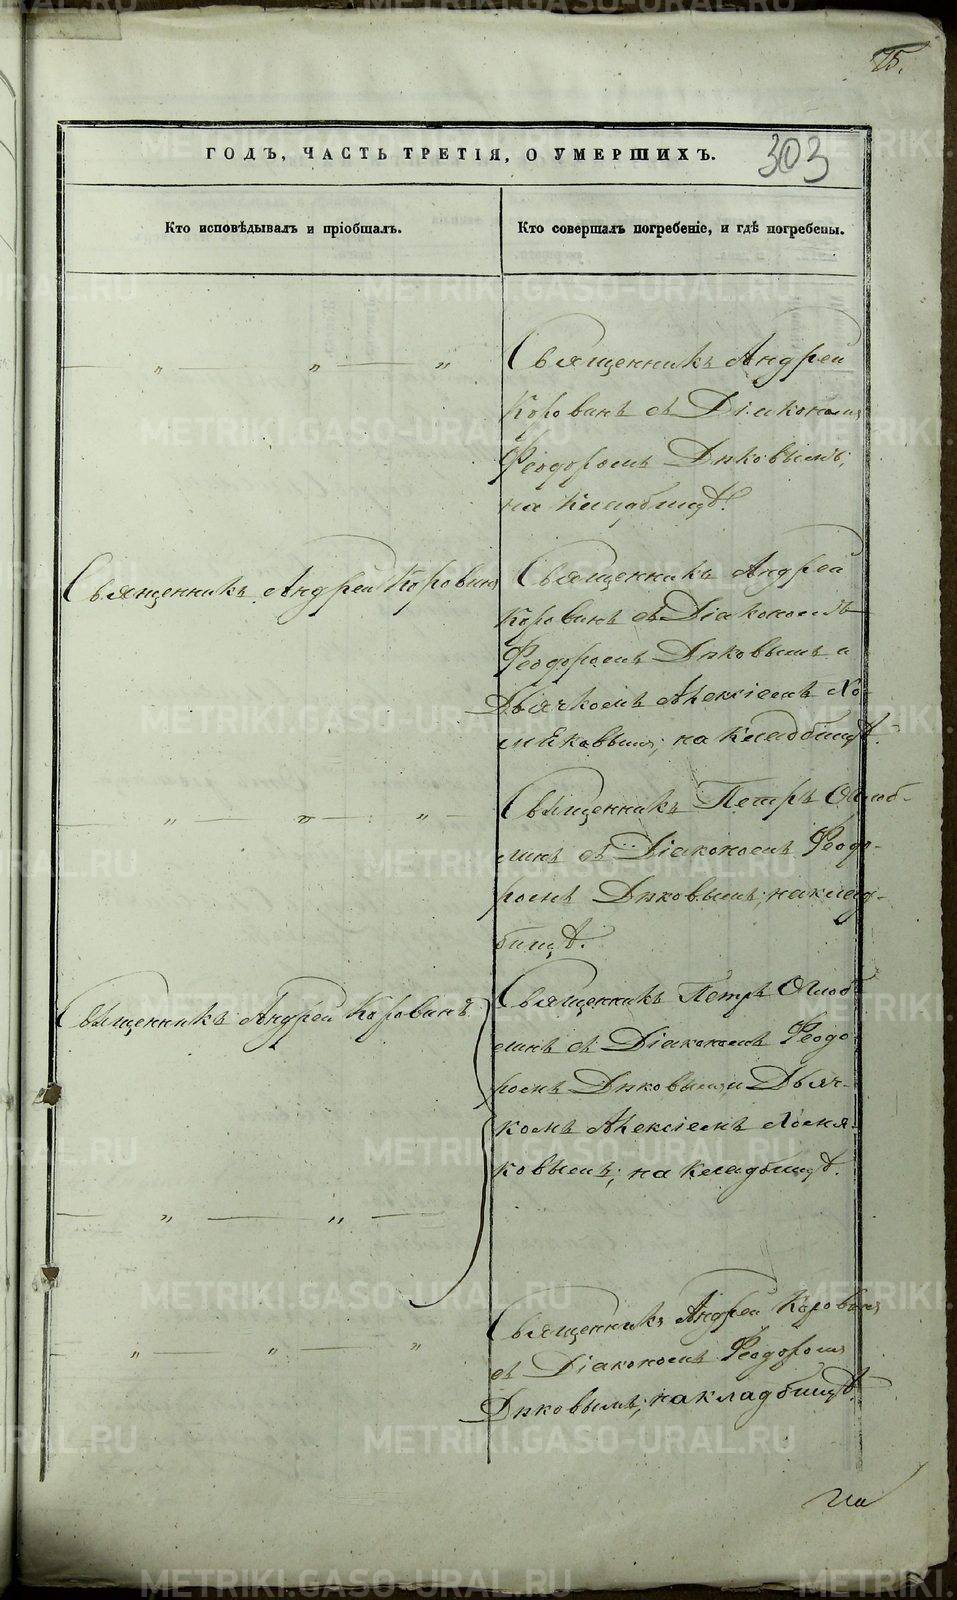 75.
303
ГОДЪ, ЧАСТЬ ТРЕТІЯ, О УМЕРШИХЪ.
Кто исповѣдывалъ и пріобщалъ.
Кто совершалъ погребеніе, и гдѣ погребены.
— „ — „ — „
Священникъ Андрей
Коровинъ съ Діакономъ
Феодоромъ Дьковымъ,
на кладбищѣ.
Священникъ Андрей Коровинъ
Священникъ Андрей
Коровинъ съ Діакономъ
Феодоромъ Дьковымъ и
Дьячкомъ Алексіемъ Хо-
мяковымъ, на кладбищѣ.
— „ — „ — „ —
Священникъ Петръ
съ Діакономъ Феодо-
ромъ Дьковымъ, на клад-
бищѣ.
Священникъ Андрей Коровинъ
Священникъ Петръ
съ Діакономъ Феодо
ромъ Дьковымъ и Дьяч-
комъ Алексіемъ Хомя-
ковымъ, на кладбищѣ.
— „ — „ —
Священникъ Андрей Коровинъ
съ Діакономъ Феодоромъ
Дьковымъ, на кладбищѣ.
— „ — „ — „
METRIKI.GASO-URAL.RU